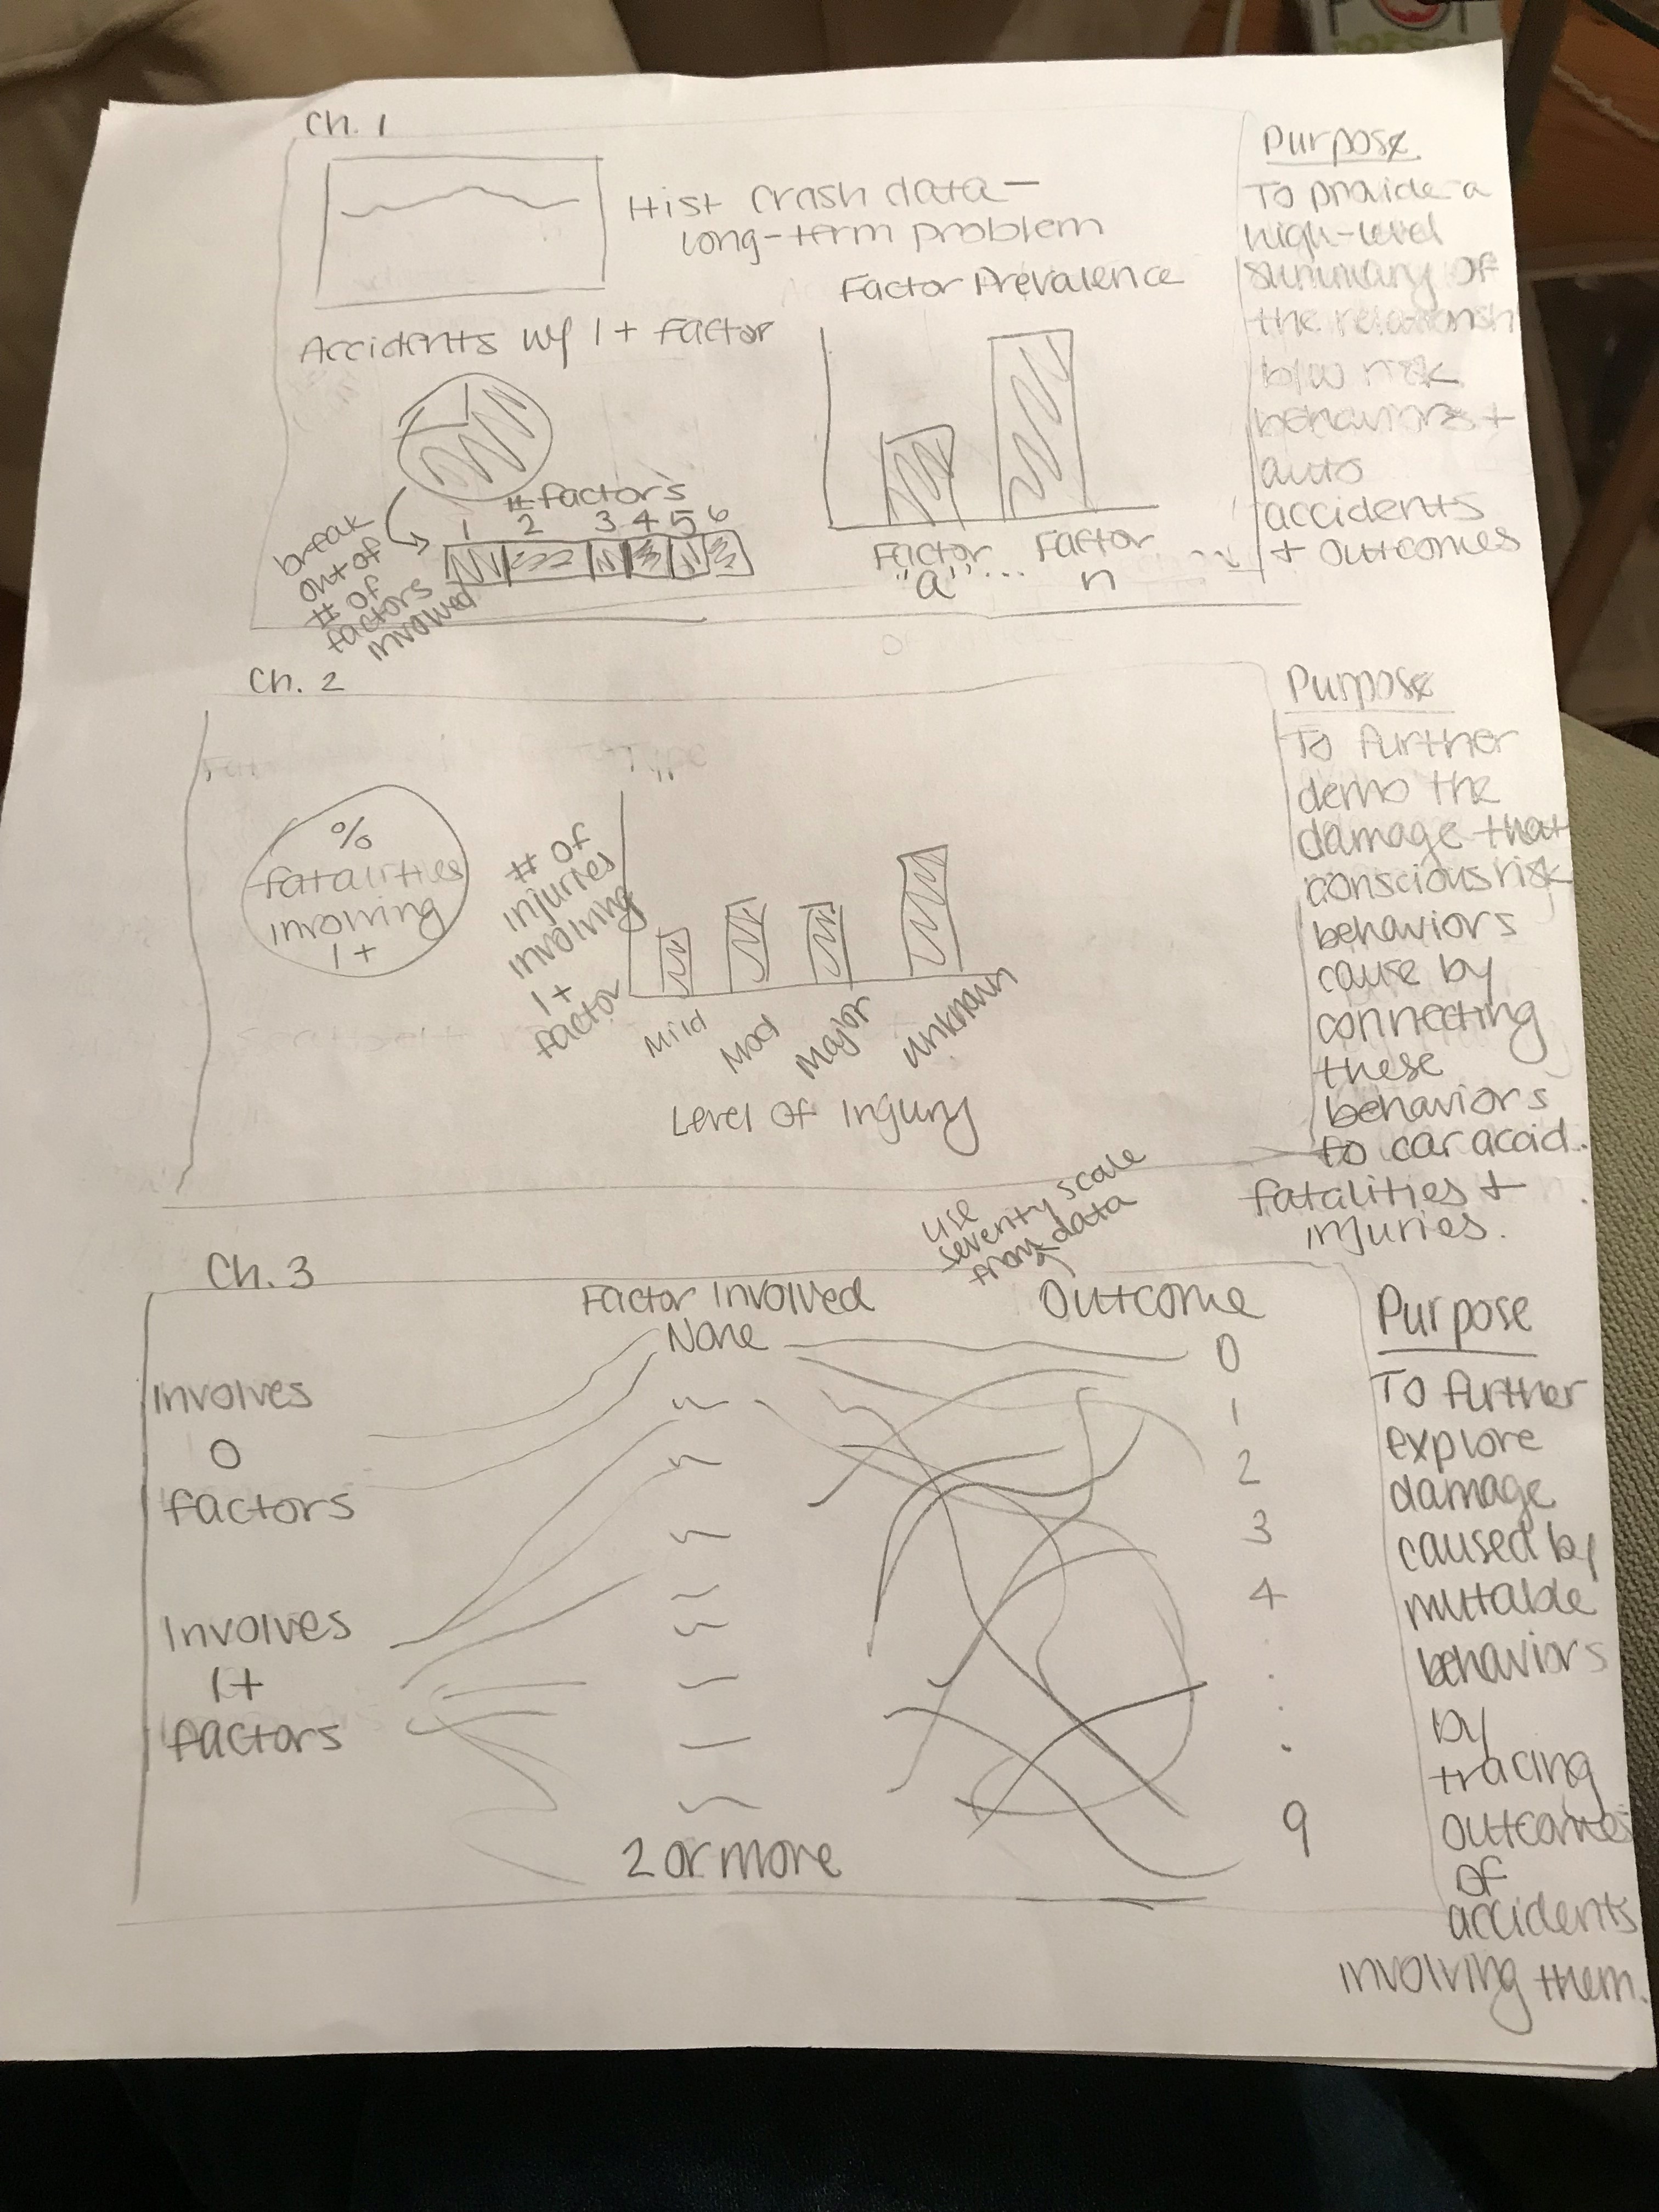 Ch. 1
Hist crash data -
long-term problem
Factor Prevalence
Accidents w/ 1+ factor
# factors
1 2 3 4 5 6
break
out of
# of
factors
involved
Factor Factor
"a" ... n
Purpose
To provide a
high-level
summary of
the relationsh
b/w risk
behaviors +
auto
accidents
+ outcomes
Ch. 2
%
fatalities
involving
1+
# of
injuries
involving
1+
factor
Mild
Mod
Major
Unknown
Level of Injury
Purpose
To further
demo the
damage that
conscious risk
behaviors
cause by
connecting
these
behaviors
to car accid.
fatalities +
injuries.
Ch. 3
use
severity scale
from data
Factor Involved
None
2 or more
Outcome
0
1
2
3
4
.
.
.
9
Involves
0
factors
Involves
1+
factors
Purpose
To further
explore
damage
caused by
mutable
behaviors
by
tracing
outcomes
of
accidents
involving them.